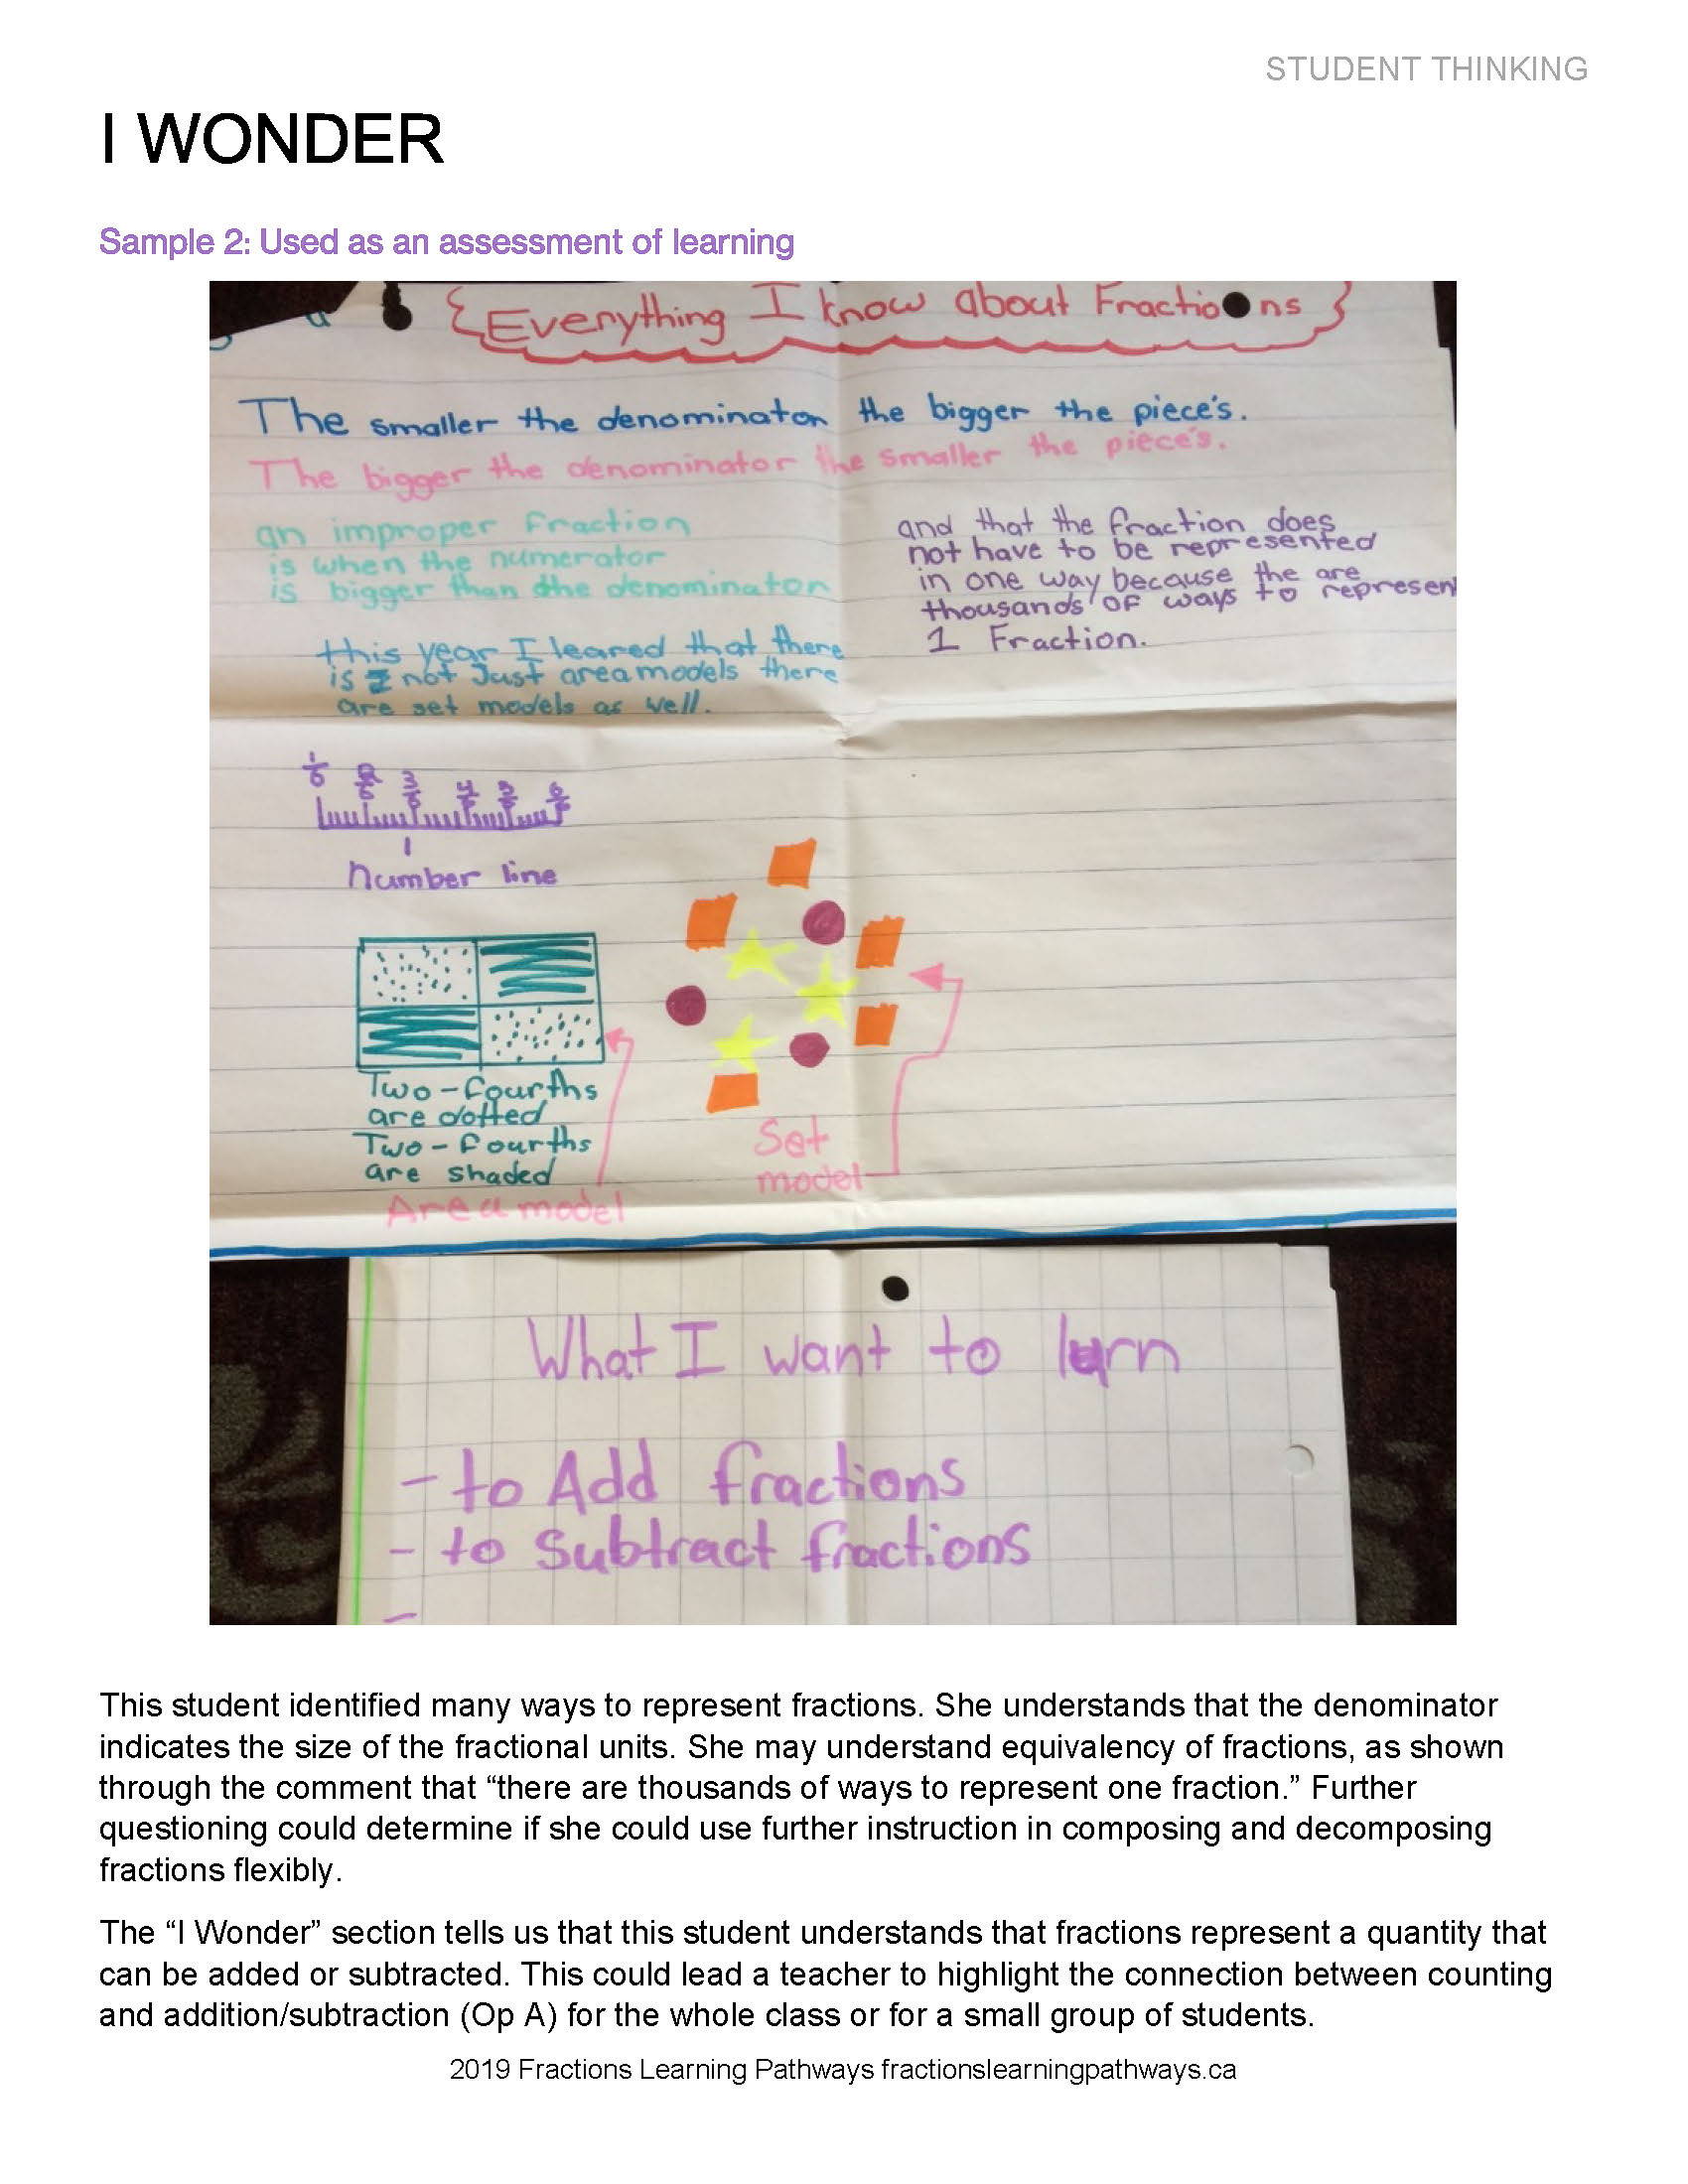 STUDENT THINKING
I WONDER
Sample 2: Used as an assessment of learning
Everything I know about Fractions
The smaller the denominator the bigger the piece's.
The bigger the denominator the smaller the piece's.
an improper fraction
is when the numerator
is bigger than the denominator
this year I leared that there
is not Just area models there
are set models as well.
and that the fraction does
not have to be represented
in one way because the are
thousands of ways to represent
1 Fraction.
1/6 2/6 3/6 4/6 5/6 6/6
1
number line
Two-fourths
are dotted
Two-fourths
are shaded
Area model
Set
model
What I want to lurn
- to Add fractions
- to Subtract fractions
-
This student identified many ways to represent fractions. She understands that the denominator
indicates the size of the fractional units. She may understand equivalency of fractions, as shown
through the comment that “there are thousands of ways to represent one fraction.” Further
questioning could determine if she could use further instruction in composing and decomposing
fractions flexibly.
The “I Wonder” section tells us that this student understands that fractions represent a quantity that
can be added or subtracted. This could lead a teacher to highlight the connection between counting
and addition/subtraction (Op A) for the whole class or for a small group of students.
2019 Fractions Learning Pathways fractionslearningpathways.ca